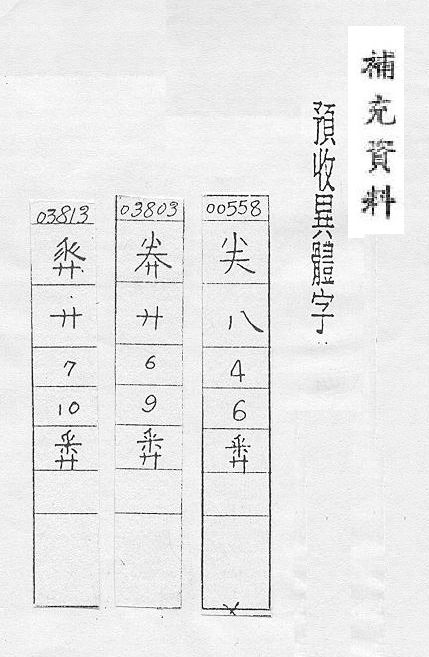 補充資料
預收異體字
00558
龹
八
4
6
𢍏
03803
廾
6
9
𢍏
03813
廾
7
10
𢍏